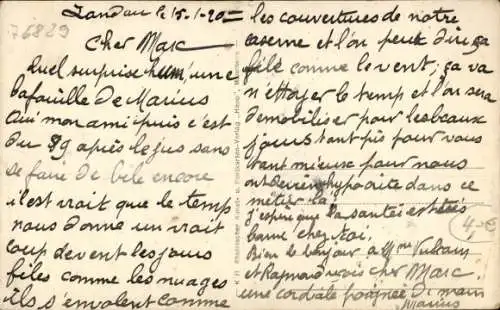 76829
Landau le 15-1-20
Cher Marc
Quel surprise hum, une
bafouille de Marius
Oui mon ami puis c'est
du 89 après le jus sans
se faire de bile encore
il est vrai que le temp
nous donne un vrai
coup de vent les jours
files comme les nuages
ils s'envolent comme
les couvertures de notre
caserne et l'on peux dire ça
file comme le vent, ça va
n'ettoyer le temp et l'on sera
demobiliser pour les beaux
jours tant pis pour vous
tant mieux pour nous
ont devien hypocite dans ce
métier la,
j'espère que la santé est très
bonne chez toi.
Bien le bonjour a Mme
et Raymond recois cher Marc
une cordiale poignée de main
Marius
4,-